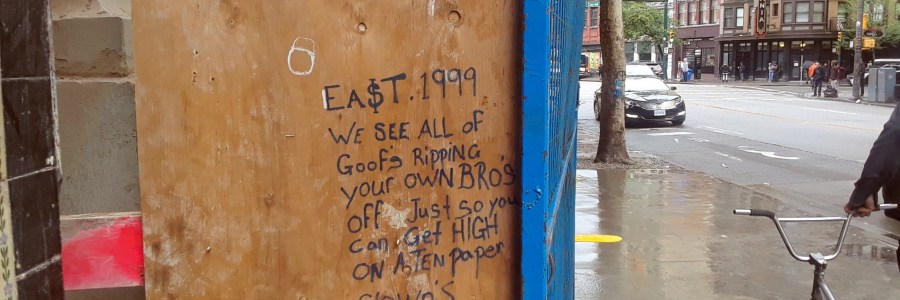 EA$T. 1999
WE SEE ALL OF
Goof's RiPPiNG
your OWN BRO's
off Just so you
can Get HIGH
ON A TEN paper
CLOWN'S